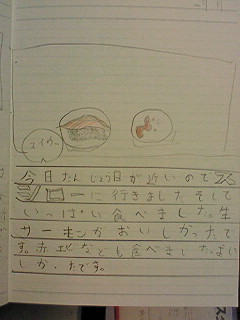 今日たんじょう日が近いのでス
シローに行きましたそして
いっぱい食べました。生
サーモンがおいしかったで
す。赤エビなども食べました。おい
しかったです。